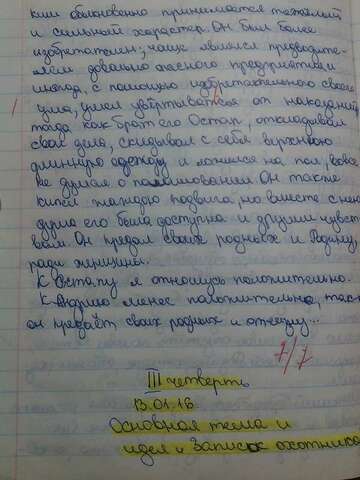 кий обыкновенно принимается тяжёлый
и сильный характер. Он был более
изобретателен; чаще являлся предводите-
лем довольно опасного предприятия и
иногда, с помощью изобретательного своего
ума, умел увёртываться от наказания
тогда как брат его Остап, откладывал
свои дела, скидывал с себя верхнюю
длинную одежду и ложился на пол, вовсе
не думая о помиловании. Он также
кипел жаждою подвига, но вместе с нею
душа его была доступна и другим чувст
вам. Он предал своих родных и Родину
ради женщины.
К Остапу я отношусь положительно.
К Андрию менее положительно, так
он предаёт своих родных и отчизну...
7/7
III четверть
13.01.16
Основная тема и
идея и Записок охотника